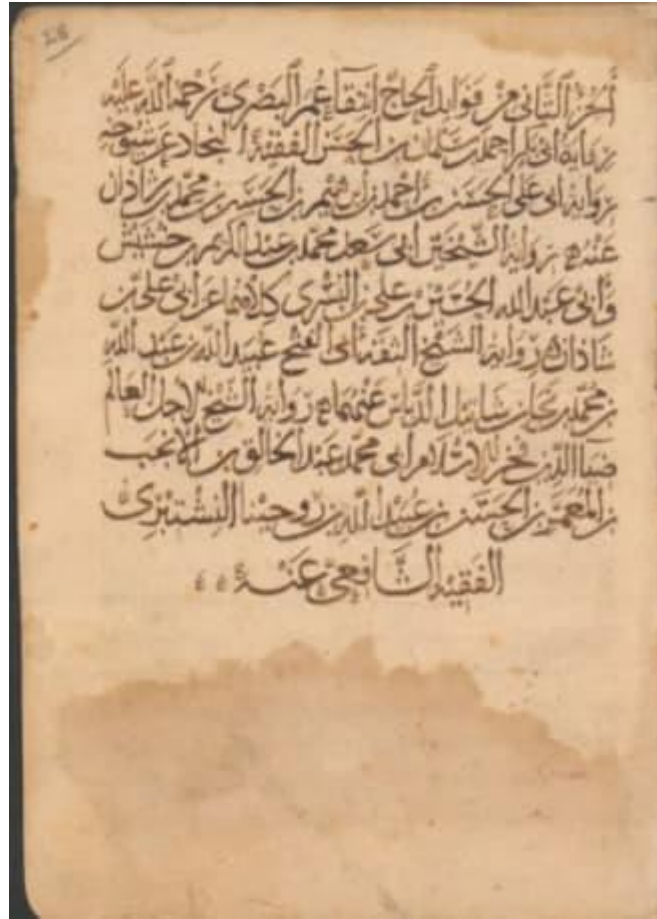 الجزء الثاني من فوايد الحاج انتقاء عمر البصري رحمة الله عليه
رواية ابي بكر احمد بن سلمان بن الحسن الفقيه النجاد عن شيوخه
رواية ابي علي الحسن بن احمد بن ابرهيم بن الحسن بن محمد بن شاذان
عنه رواية الشيخين ابي سعد محمد بن عبد الكريم بن خشيش
وابي عبد الله الحسين بن علي بن البسري كلاهما عن ابي علي بن
شاذان رواية الشيخ الثقة ابي الفتح عبيد الله بن عبد الله
بن محمد بن نجا بن شاتيل الدباس عنهما رواية الشيخ الاجل العالم
ضيا الدين فخر الاسلام ابي محمد عبد الخالق بن الانجب
بن المعمر بن الحسن بن عبيد الله بن روحينا النشتبري
الفقيه الشافعي عنه